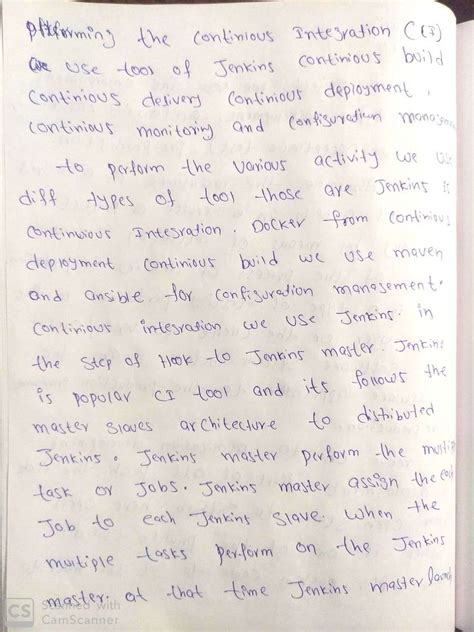 Pltforming the continious Integration (CI)
we use tool of Jenkins continious build
continious delivery continious deployment,
continious monitoring and configuration manageme
to perform the various activity we use
diff types of tool those are Jenkins is
continuious Integration. Docker from continious
deployment continious build we use maven
and ansible for configuration management.
continious integration we use Jenkins. in
the step of Hook to Jenkins master. Jenkins
is popular CI tool and its follows the
master slaves architecture to distributed
Jenkins. Jenkins master perform the multip
task or Jobs. Jenkins master assign the each
Job to each Jenkins slave. When the
multiple tasks perform on the Jenkins
master. at that time Jenkins master
CS Scanned with
CamScanner